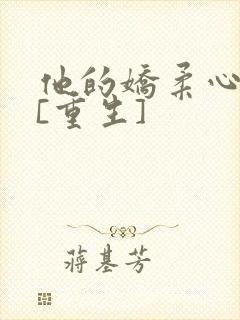 他的嬌柔心
[重生]
蔣基芳